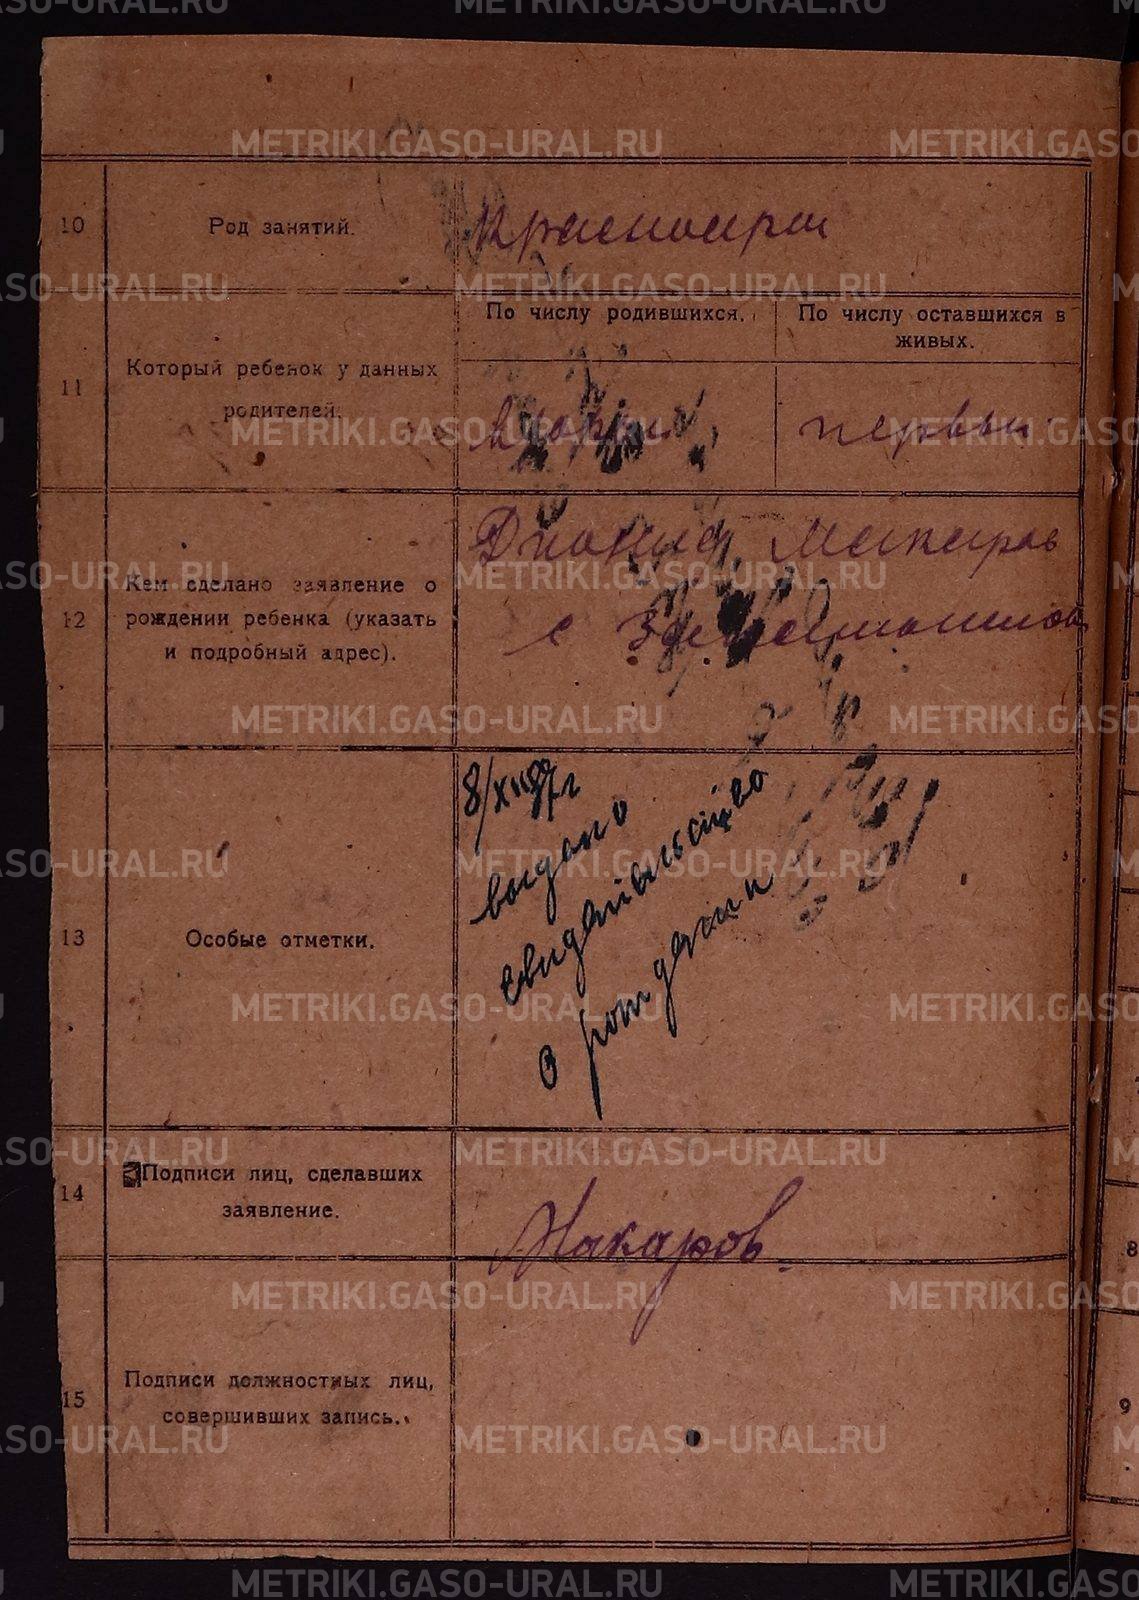 10
Род занятий.
Красноарм
11
Который ребенок у данных
родителей.
По числу родившихся.
По числу оставшихся в
живых.
первый
12
Кем сделано заявление о
рождении ребенка (указать
и подробный адрес).
Макаров
с
13
Особые отметки.
выдано
свидетельство
о рождении
14
Подписи лиц, сделавших
заявление.
Макаров.
15
Подписи должностных лиц,
совершивших запись.
8
9
METRIKI.GASO-URAL.RU